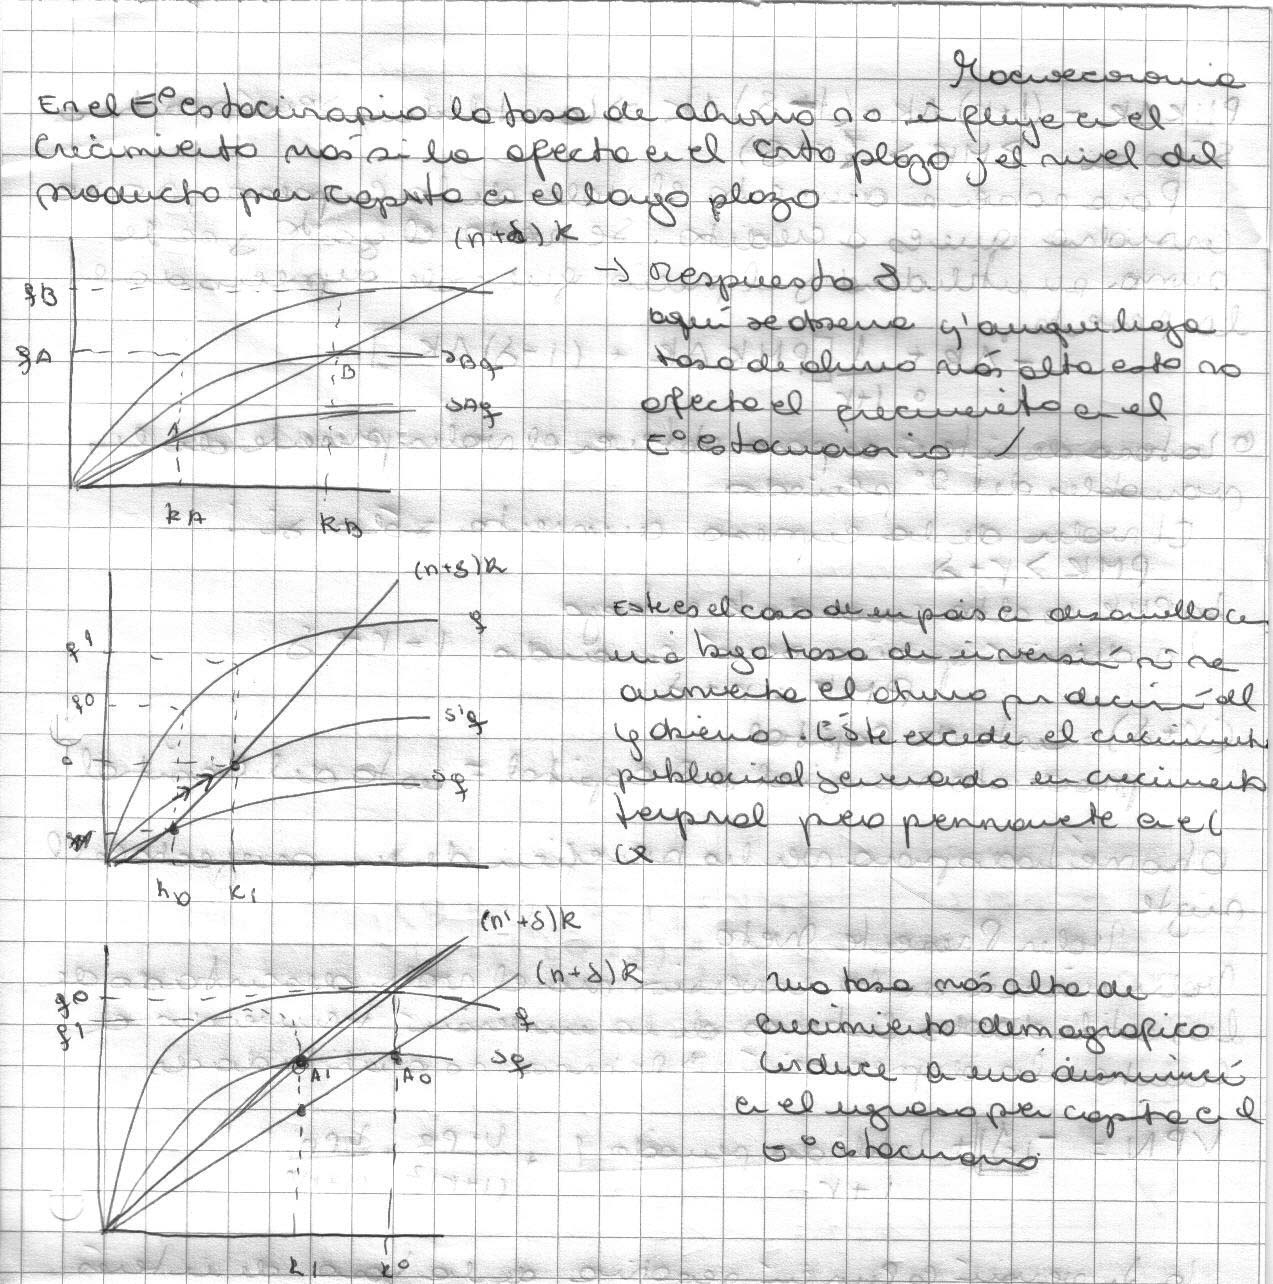 Macroeconomia
En el Eº estacionario la tasa de ahorro no influye en el
crecimiento más si lo afecta en el corto plazo y el nivel del
producto per capita en el largo plazo
(n+δ)k
qB
→ respuesta
qA
aquí se observa q' aunque haya
sBq
tasa de ahorro más alta esto no
B
sAq
afecta el crecimiento en el
Eº estacionario
kA
kB
(n+δ)k
q
Este es el caso de un país en desarrollo con
q1
una baja tasa de inversión si se
aumenta el ahorro por decisión del
q0
s'q
gobierno. Este excede el crecimiento
sq
poblacional generando un crecimiento
temporal pero permanente en el
k0
k1
(n'+δ)k
(n+δ)k
q0
una tasa más alta de
q1
q
crecimiento demografico
sq
A1
A0
induce a una disminución
en el ingreso per capita en el
Eº estacionario
k1
k0